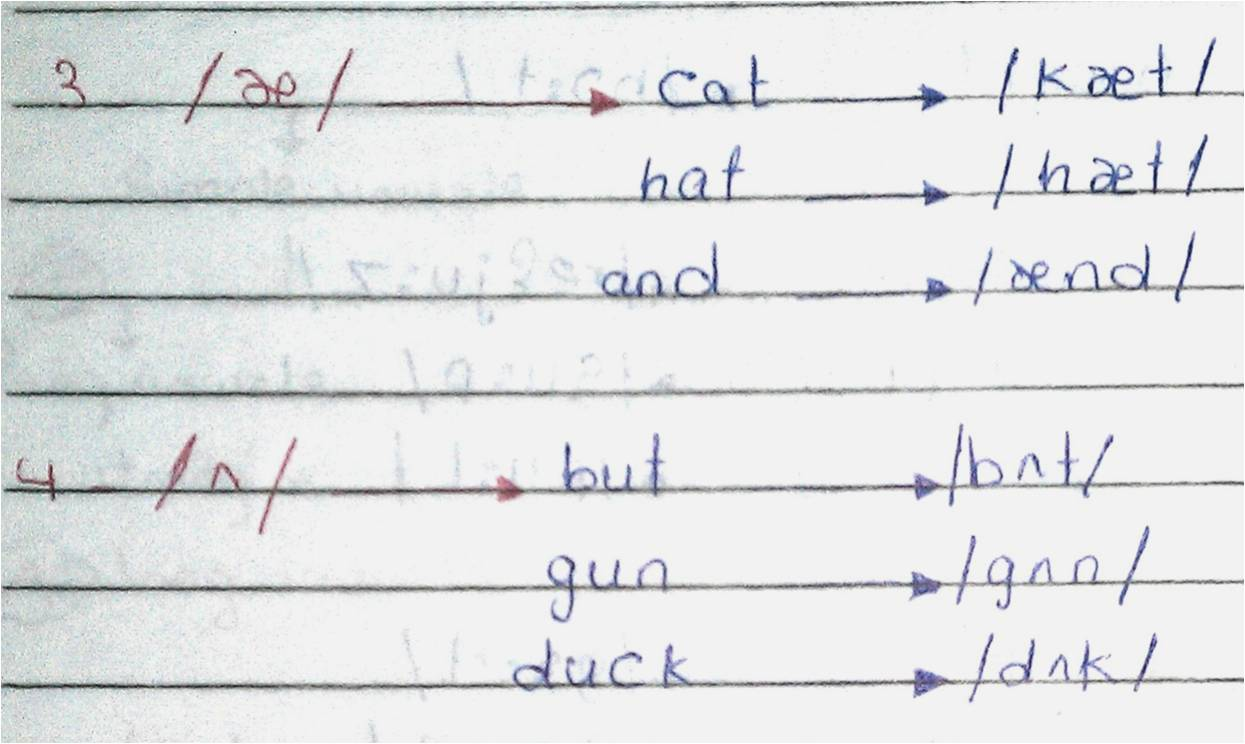 3 /æ/ → cat → /kæt/
hat → /hæt/
and → /ænd/
4 /ʌ/ → but → /bʌt/
gun → /gʌn/
duck → /dʌk/